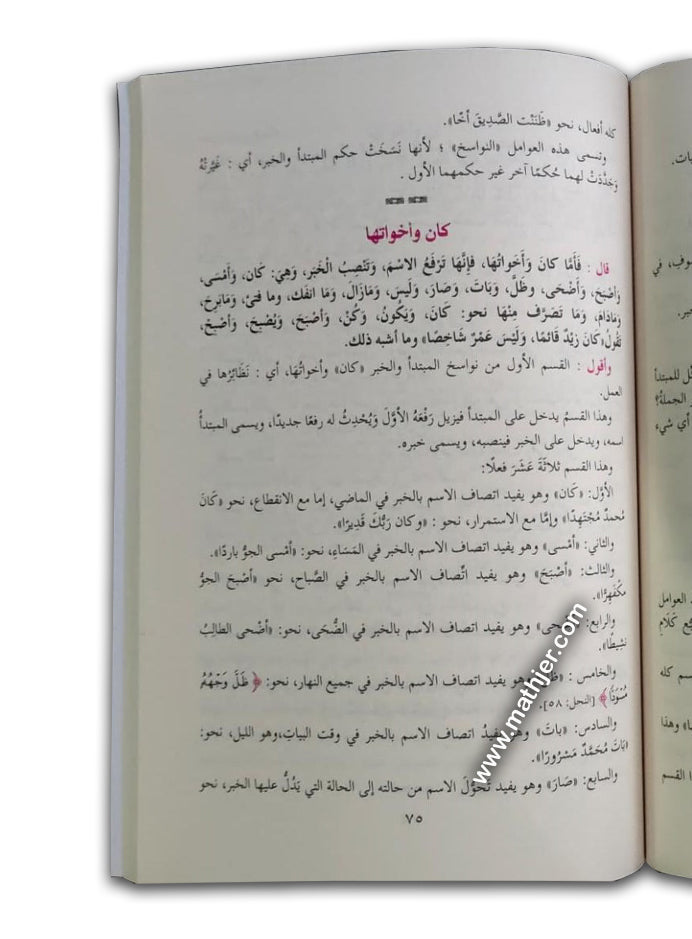 كله أفعال، نحو «ظَنَنْتُ الصَّدِيقَ أخًا».
وتسمى هذه العوامل «النواسخ» ؛ لأنها نَسَخَتْ حكم المبتدأ والخبر، أي : غَيَّرَتْهُ
وَجَدَّدَتْ لهما حُكمًا آخر غير حكمهما الأول .
كان وأخواتها
قال : فَأَمَّا كانَ وَأَخَواتُهَا، فإِنَّهَا تَرْفَعُ الاسْمَ، وَتَنْصِبُ الْخَبَر، وَهِيَ: كَان، وَأَمْسَى،
وَأَصْبَحَ، وَأَضْحَى، وظَلَّ، وَبَاتَ، وَصَارَ، وَلَيْسَ، وَمَازَالَ، وَمَا انفَك، وما فتئ، وَمَابَرِحَ،
وَمَادَامَ، وَمَا تَصَرَّفَ مِنْهَا نحو: كَانَ، وَيَكُونُ، وَكُنْ، وَأَصْبَحَ، وَيُصْبِحَ، وَأَصْبِحْ،
تَقُولُ«كَانَ زَيْدٌ قَائمًا، وَلَيْسَ عَمْرٌ شَاخِصًا» وما أشبه ذلك.
وأقول : القسم الأول من نواسخ المبتدأ والخبر «كان» وأخواتُهَا، أي : نَظَائِرُها في
العمل.
وهذا القسمُ يدخل على المبتدأ فيزيل رَفْعَهُ الأوَّلَ وَيُحْدِثُ له رفعًا جديدًا، ويسمى المبتدأُ
اسمه، ويدخل على الخبر فينصبه، ويسمى خبره.
وهذا القسم ثلاثَةَ عَشَرَ فعلًا:
الأوَّل: «كَان» وهو يفيد اتصاف الاسم بالخبر في الماضي، إما مع الانقطاع، نحو «كَانَ
مُحمدٌ مُجْتَهِدًا» وإمَّا مع الاستمرار، نحو : «وكان رَبُّكَ قَدِيرًا».
والثاني: «أَمْسى» وهو يفيد اتصاف الاسم بالخبر في المَسَاءِ، نحو: «أمْسى الجوُّ باردًا».
والثالث: «أَصْبَحَ» وهو يفيد اتِّصاف الاسم بالخبر في الصَّباح، نحو «أصْبَحَ الجوُّ
مكْفَهِرًا».
والرابع: «أضحى» وهو يفيد اتصاف الاسم بالخبر في الضُّحَى، نحو: «أضْحى الطالِبُ
نشيطًا».
والخامس : «ظل» وهو يفيد اتصاف الاسم بالخبر في جميع النهار، نحو: ﴿ ظَلَّ وَجْهُهُ
مُسْوَدًّا ﴾ [النحل: ٥٨].
والسادس: «باتَ» وهو يفيدُ اتصاف الاسم بالخبر في وقت البيات،وهو الليل، نحو:
«بَاتَ مُحَمَّدٌ مَسْرُورًا».
والسابع: «صَارَ» وهو يفيد تحوُّلَ الاسم من حالته إلى الحالة التي يَدُلُّ عليها الخبر، نحو
٧٥
www.mathjer.com